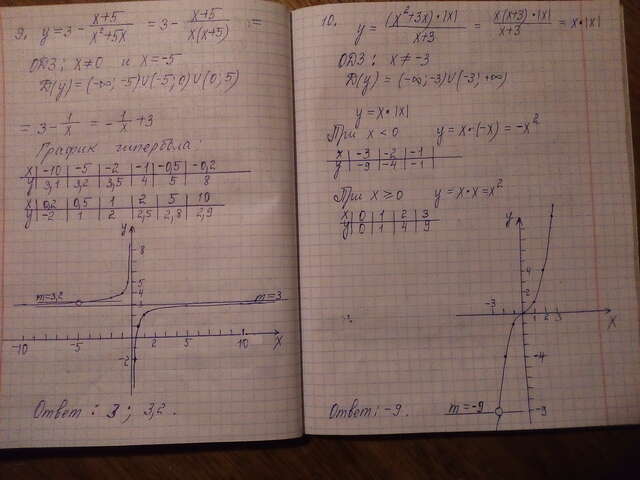 9. y = 3 - (x+5)/(x²+5x) = 3 - (x+5)/(x(x+5)) =
ОДЗ: x≠0 и x=-5
D(y)=(-∞;-5)∪(-5;0)∪(0,5)
= 3 - 1/x = -1/x + 3
График гипербола:
x | -10 | -5 | -2 | -1 | -0,5 | -0,2
y | 3,1 | 3,2 | 3,5 | 4 | 5 | 8
x | 0,2 | 0,5 | 1 | 2 | 5 | 10
y | -2 | 1 | 2 | 2,5 | 2,8 | 2,9
y
8
5
4
3
m=3,2
m=3
-10 -5 2 10 x
-2
Ответ: 3; 3,2.
10. y = ((x²+3x)·|x|)/(x+3) = (x(x+3)·|x|)/(x+3) = x·|x|
ОДЗ: x ≠ -3
D(y) = (-∞;-3)∪(-3;+∞)
y = x·|x|
При x < 0 y = x·(-x) = -x²
x | -3 | -2 | -1 |
y | -9 | -4 | -1 |
При x ≥ 0 y = x·x = x²
x | 0 | 1 | 2 | 3
y | 0 | 1 | 4 | 9
y
4
2
-3 1 2 3 x
-4
m=-9 -9
Ответ: -9.